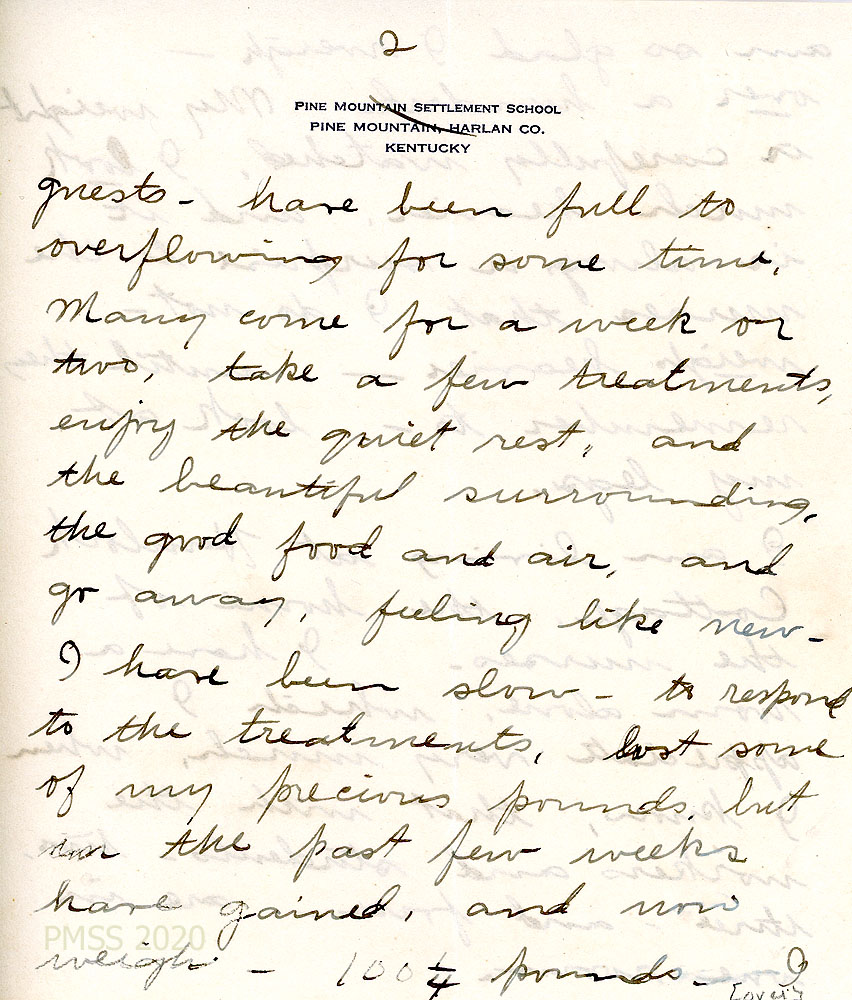 2
PINE MOUNTAIN SETTLEMENT SCHOOL
PINE MOUNTAIN, HARLAN CO.
KENTUCKY
guests - have been full to
overflowing for some time.
Many come for a week or
two, take a few treatments,
enjoy the quiet rest, and
the beautiful surrounding,
the good food and air, and
go away, feeling like new -
I have been slow - to respond
to the treatments, lost some
of my precious pounds, but
in the past few weeks
have gained, and now
PMSS 2020
weigh - 100 1/4 pounds - I
[over]